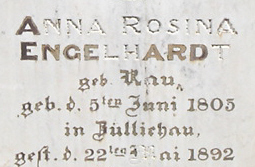 Anna Rosina
Engelhardt
geb. Rau,
geb. d. 5ten Juni 1805
in Züllichau,
gest. d. 22ten Mai 1892